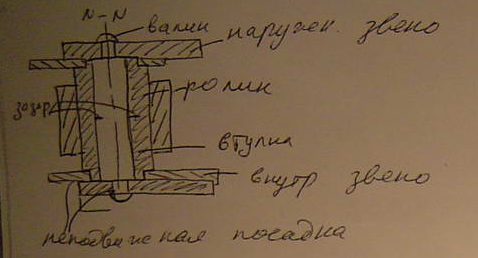 N-N
валик
наружн. звено
ролик
зазор
втулка
внутр звено
неподвижная посадка